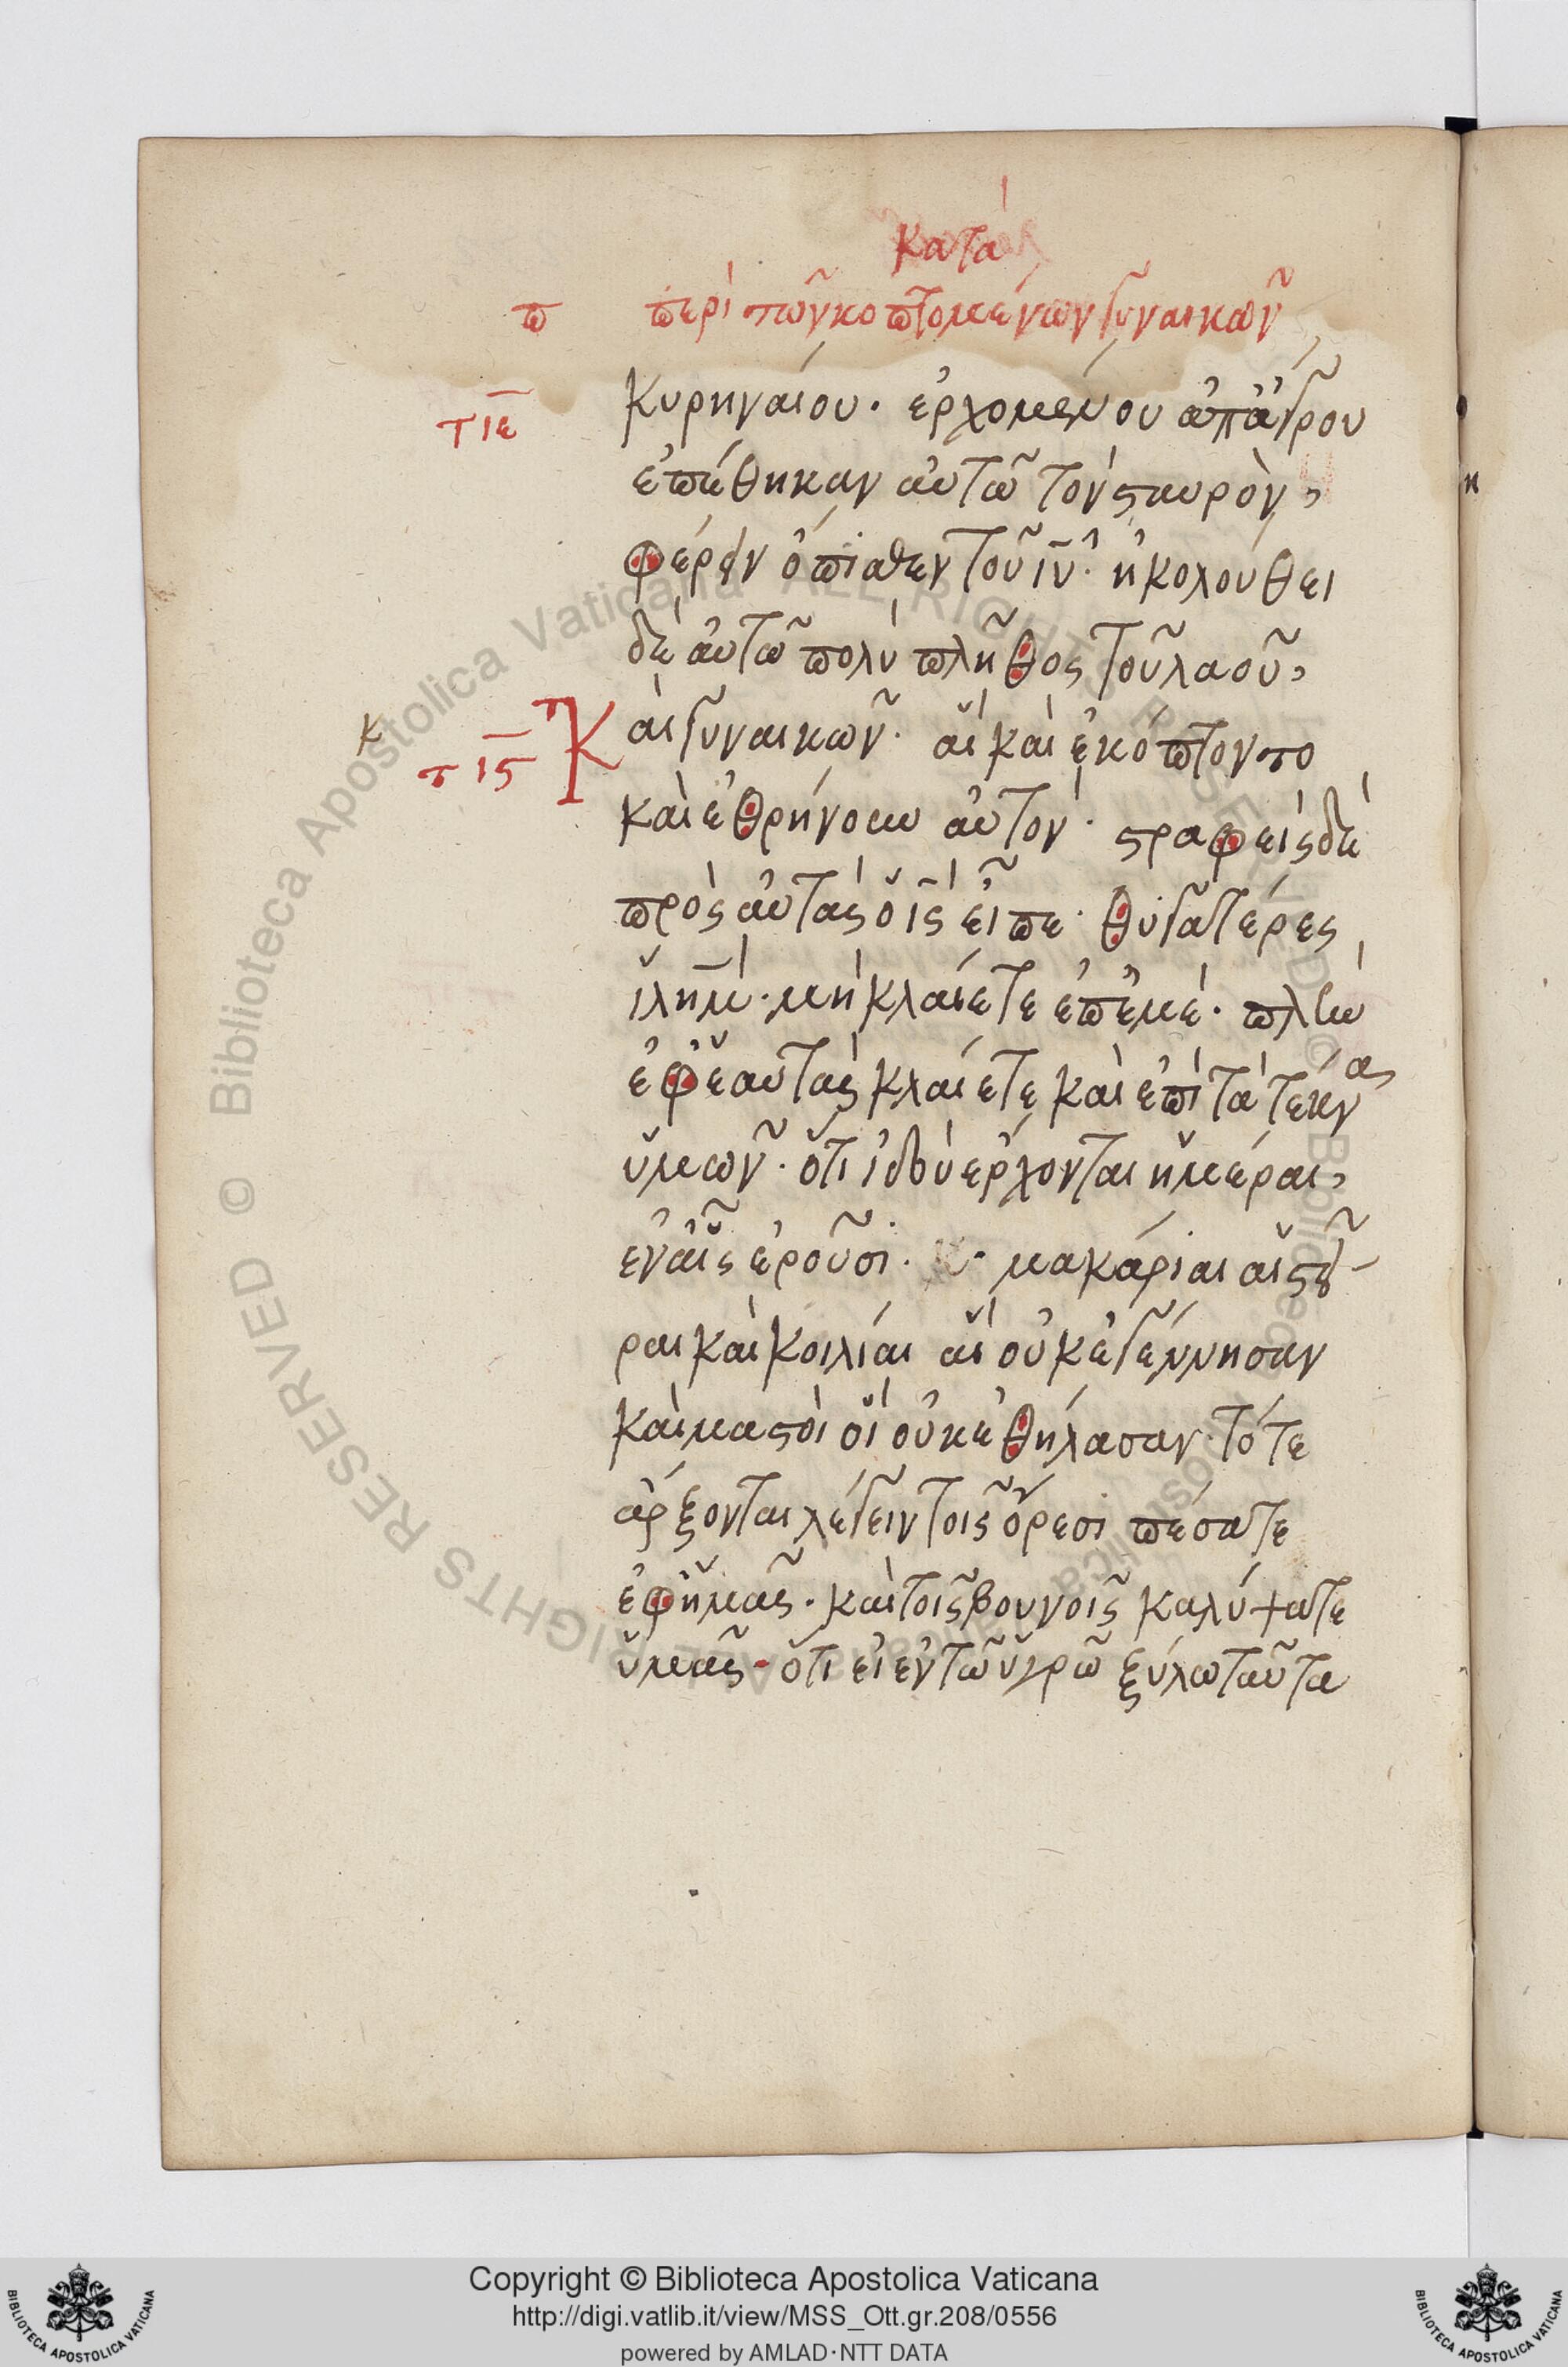 κατὰ
π περὶ τῶν κοπτομένων γυναικῶν
τιε κυρηναίου· ἐρχομένου ἀπἀγροῦ
ἐπέθηκαν αὐτῶ τὸν σταυρὸν,
φέρειν ὄπισθεν τοῦ ιυ̅· ἠκολούθει
δὲ αὐτῶ πολὺ πλῆθος τοῦ λαοῦ,
κ τιϛ Καὶ γυναικῶν· αἳ καὶ ἐκόπτοντο
καὶ ἐθρήνουν αὐτόν· στραφεὶς δὲ
πρὸς αὐτὰς ὁ ις̅ εἶπε· θυγατέρες
ιλη̅μ· μὴ κλαίετε ἐπἐμέ· πλὴν
ἐφἑαυτὰς κλαίετε καὶ ἐπὶ τὰ τέκνα
ὑμῶν· ὅτι ἰδοὺ ἔρχονται ἡμέραι,
ἐν αἷς ἐροῦσι· μακάριαι αἱ στεῖ-
ραι καὶ κοιλίαι αἳ οὐκ ἐγέννησαν
καὶ μαστοὶ οἳ οὐκ ἐθήλασαν· τότε
ἄρξονται λέγειν τοῖς ὄρεσι πέσατε
ἐφἡμᾶς· καὶ τοῖς βουνοῖς καλύψατε
ὑμᾶς· ὅτι εἰ ἐν τῶ ὑγρῶ ξύλω ταῦτα
Copyright © Biblioteca Apostolica Vaticana
http://digi.vatlib.it/view/MSS_Ott.gr.208/0556
powered by AMLAD·NTT DATA
BIBLIOTECA APOSTOLICA VATICANA
BIBLIOTECA APOSTOLICA VATICANA
© Biblioteca Apostolica Vaticana ALL RIGHTS RESERVED
© Biblioteca Apostolica Vaticana ALL RIGHTS RESERVED